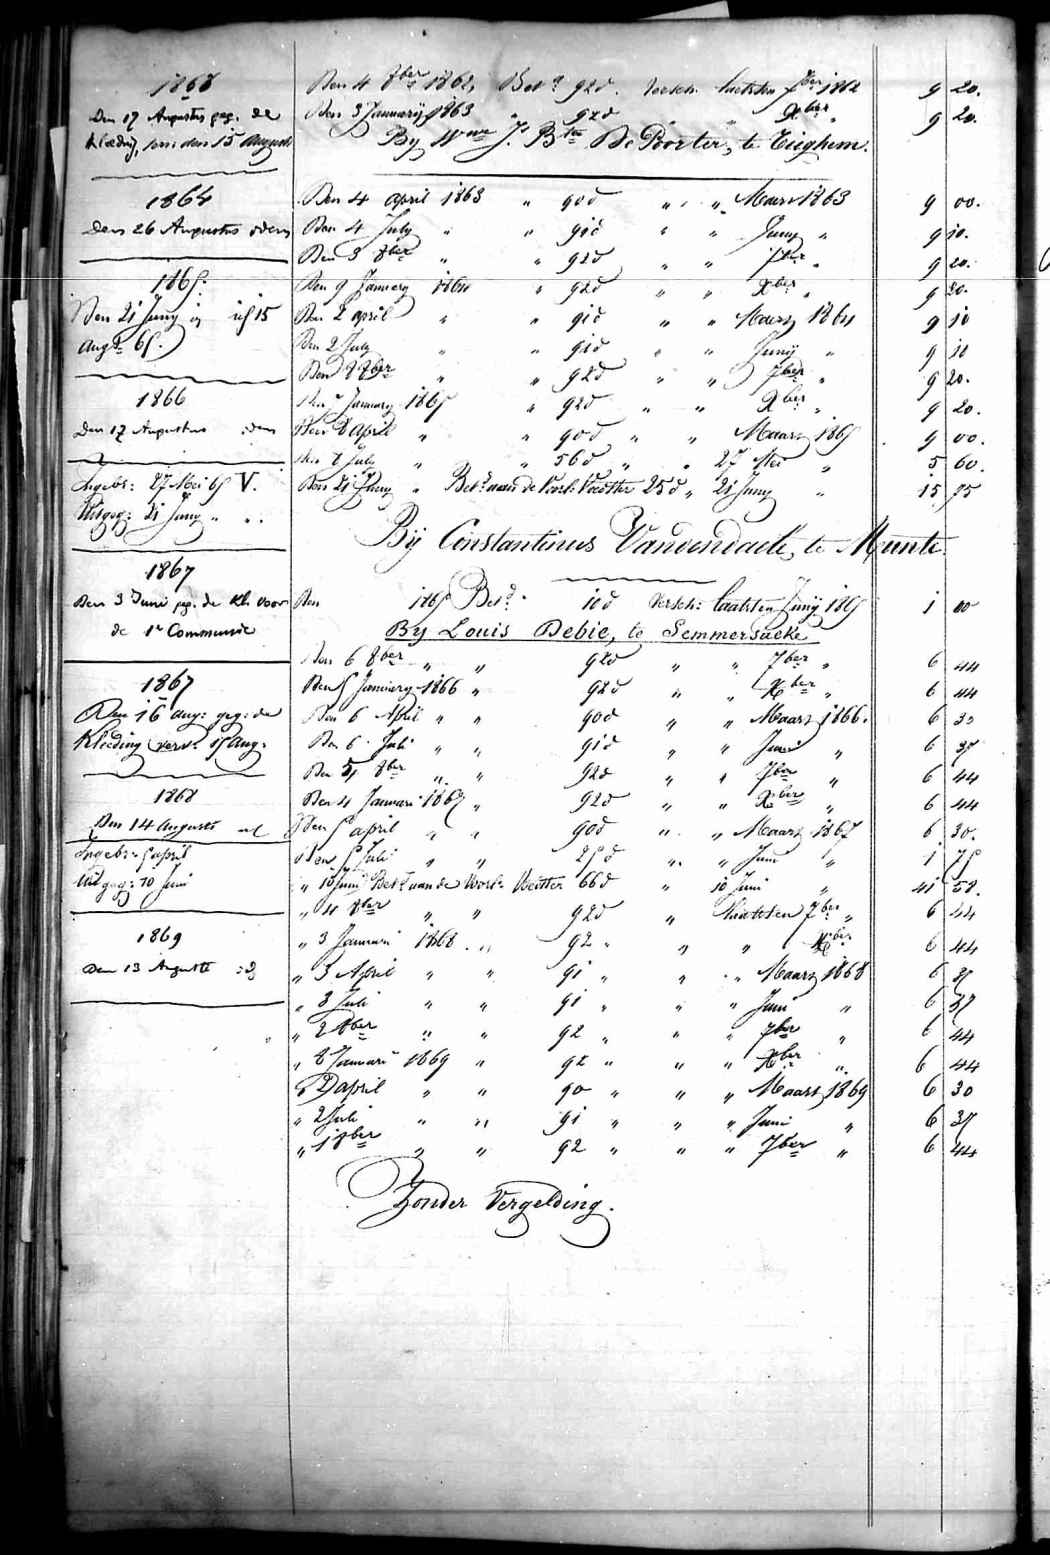 1868
Den 17 Augustus geg. de
kleeding, vers: den 15 Augusti
1864
Den 26 Augustus idem
1865.
Den 21 Juny
Aug. 65.
1866
Den 17 Augustus idem
Ingebr: 27 Mei 65 V.
Uitgeg: 21 Juny " "
1867
Den 3 Juni geg. de kl. voor
de 1e Communie
1867
Den 16 aug: geg: de
Kleeding vers. 15 Aug.
1868
Den 14 Augusti id
Ingebr. 5 april
Uitgeg: 10 Juni
1869
Den 13 Auguste id
Den 4 8ber 1862, Bet. 92d. versch. laetsten 7ber 1862 9 20.
Den 3 January 1863 " 92d " Xber " 9 20.
By Wwe J. Bte De Poorter, te Tieghem.
Den 4 april 1863 " 90d " " Maart 1863 9 00.
Den 4 July " " 91d " " Juny " 9 10.
Den 3 8ber " " 92d " " 7ber " 9 20.
Den 9 January 1864 " 92d " " Xber " 9 20.
Den 2 april " " 91d " " Maart 1864 9 10
Den 2 July " " 91d " " Juny " 9 10
Den 8ber " " 92d " " 7ber " 9 20.
January 1865 " 92d " " Xber " 9 20.
Den 8 April " " 90d " " Maart 1865 9 00.
July " " 56d " " 27 Mei " 5 60.
Den 21 Juny " Bet. aan de Voorl. Voedster 25d " 21 Juny " 15 75
By Constantinus Vandendaele, te Munte.
Den 1865 Bet. 10d versch: laatsten Juny 1865 1 00
By Louis Debie, te Semmersaeke
Den 6 8ber " " 92d " " 7ber " 6 44
Den 5 January 1866 " 92d " " Xber " 6 44
Den 6 April " " 90d " " Maart 1866. 6 30
Den 6 Juli " " 91d " " Juni " 6 37
Den 5 8ber " " 92d " " 7ber " 6 44
Den 4 Januari 1867 " 92d " " Xber " 6 44
Den 5 april " " 90d " " Maart 1867 6 30.
Den 5 Juli " " 25d " " Juni " 1 75
" 10 Juni Bet. aan de Voorl. Voedster 66d " 10 Juni " 41 58.
" 4 8ber " " 92d " laatsten 7ber " 6 44
" 3 Januari 1868 " 92 " " " Xber 6 44
" 3 April " " 91 " " " Maart 1868 6 37
" 3 Juli " " 91 " " " Juni " 6 37
" 2 8ber " " 92 " " " 7ber " 6 44
" 8 Januari 1869 " 92 " " " Xber " 6 44
" 2 april " " 90 " " " Maart 1869 6 30
" 2 Juli " " 91 " " " Juni " 6 37
" 1 8ber " " 92 " " " 7ber " 6 44
Zonder Vergelding.